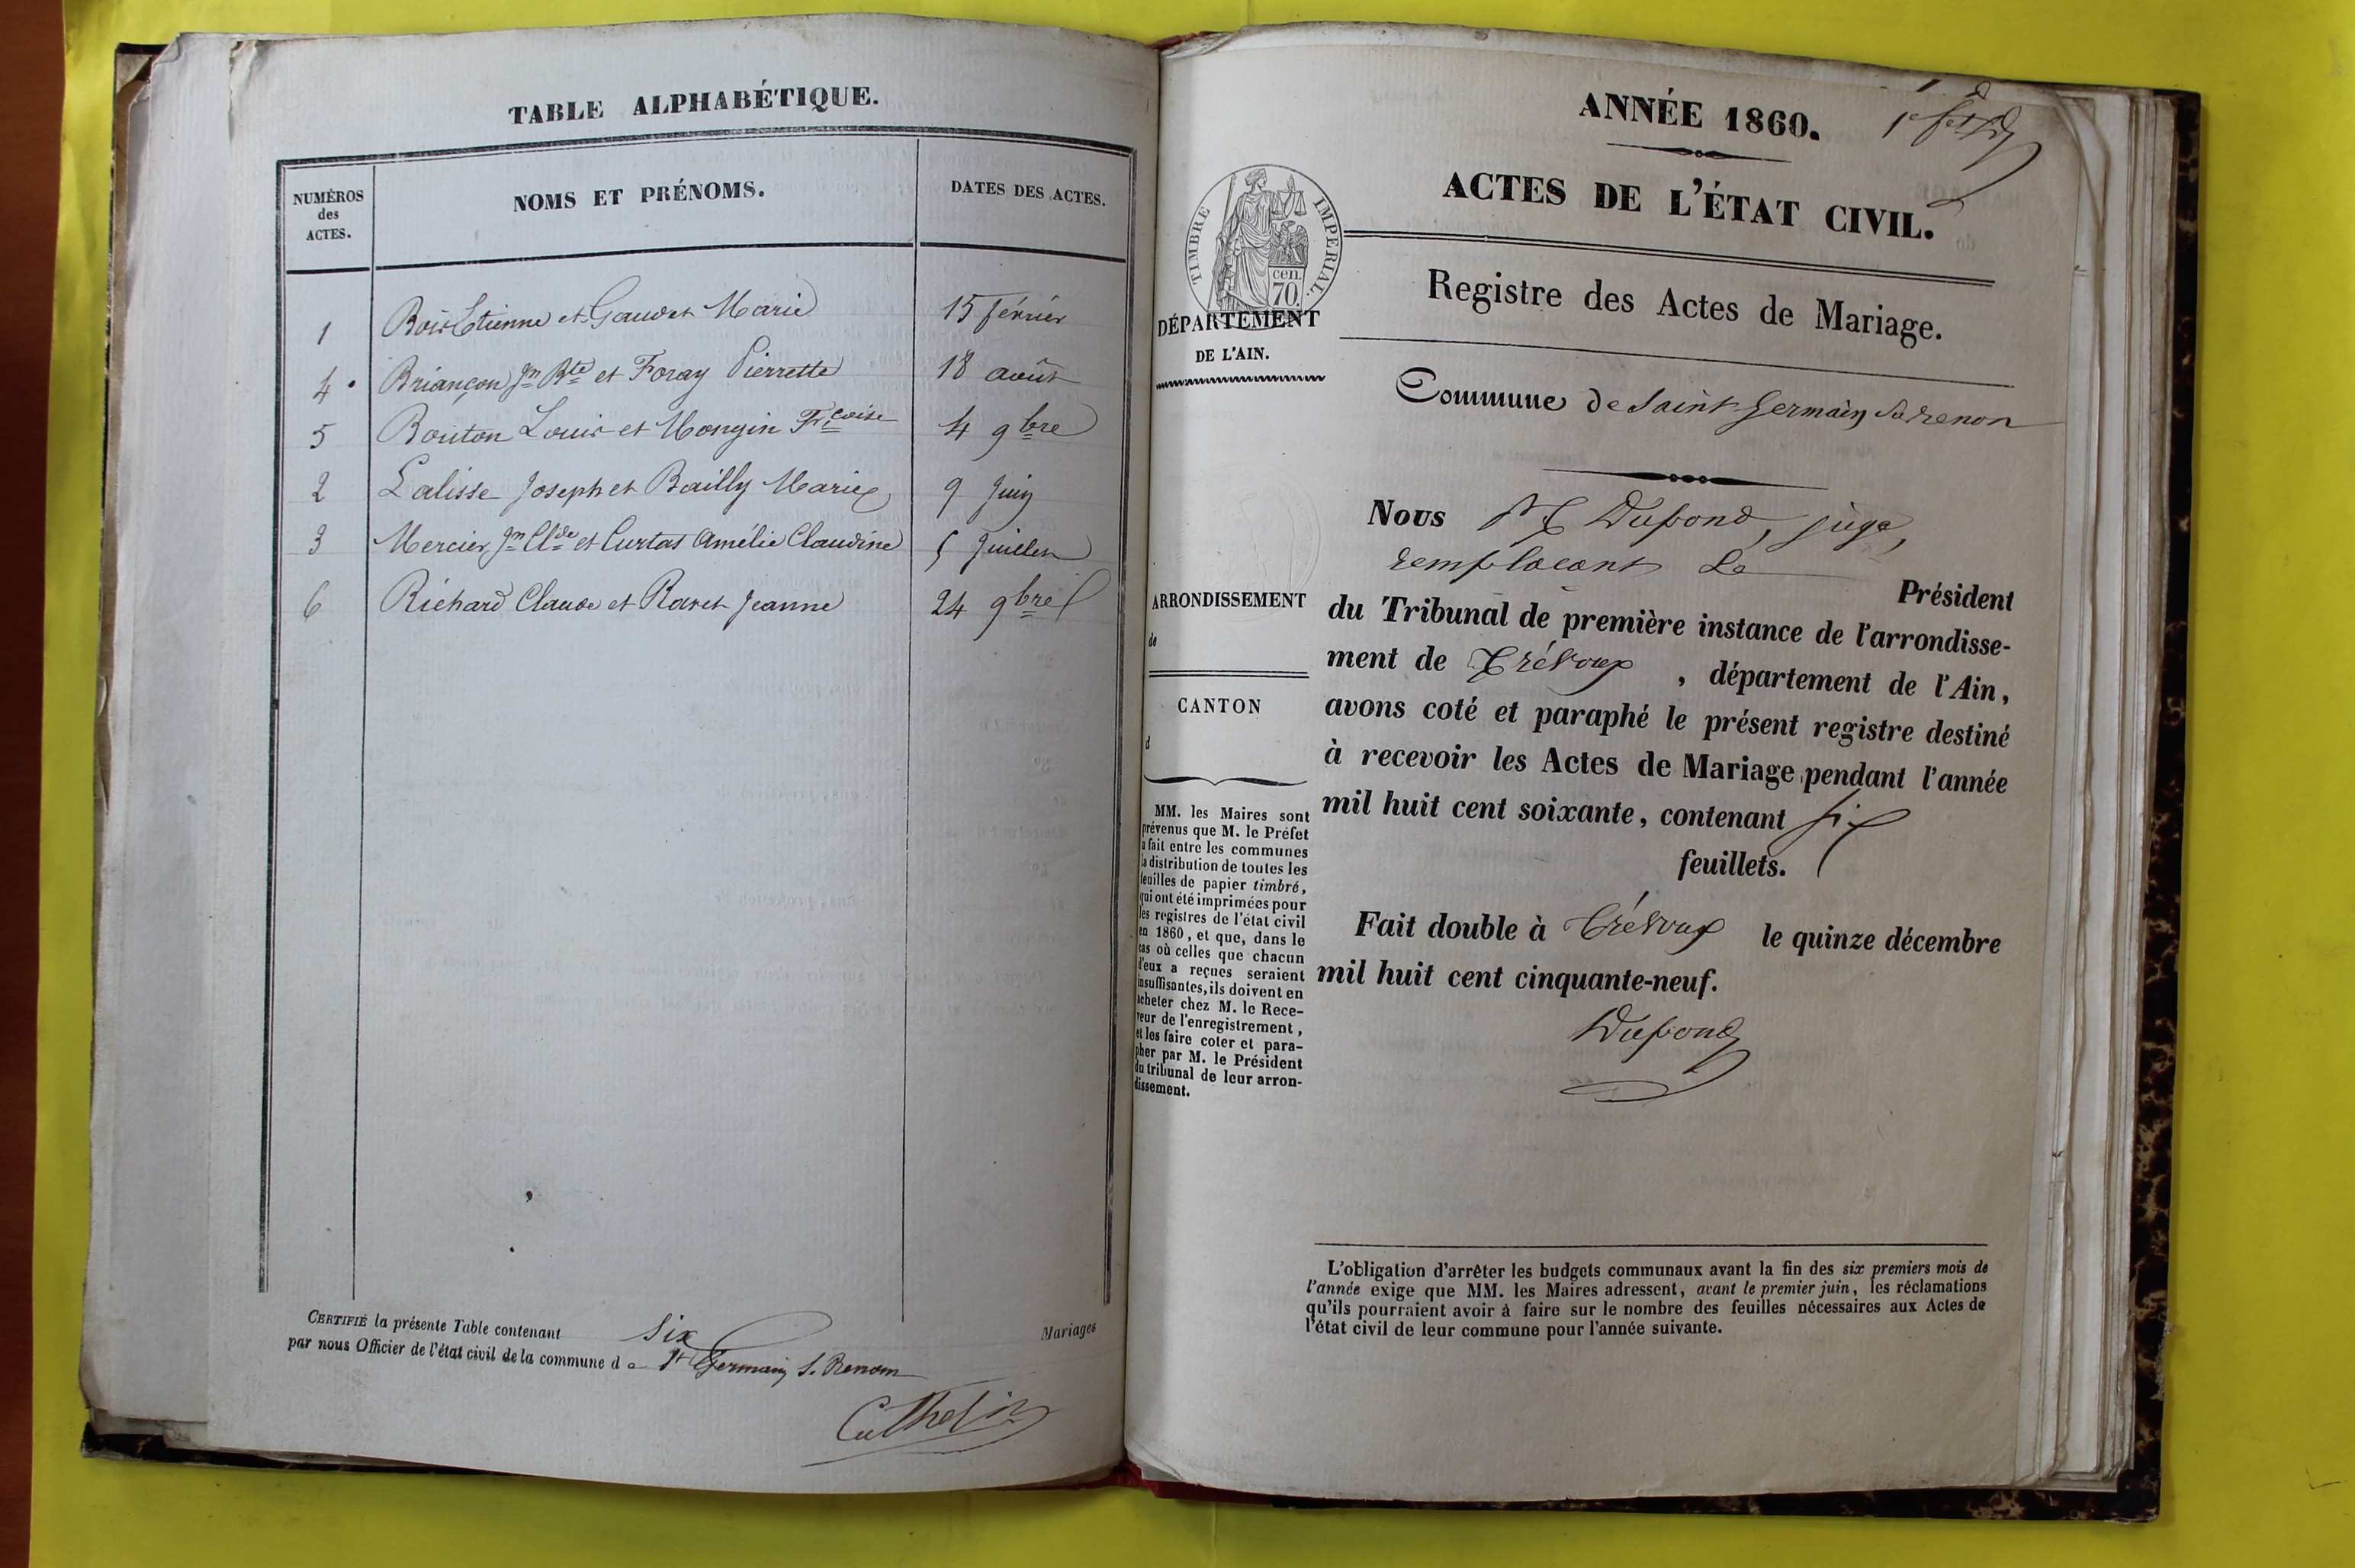 TABLE ALPHABÉTIQUE.
NUMÉROS
des
ACTES.
NOMS ET PRÉNOMS.
DATES DES ACTES.
1 Bois Etienne et Gaudet Marie 15 février
4 Briançon Jn Bte et Foray Pierrette 18 août
5 Bouton Louis et Mongin Frcoise 4 9bre
2 Lalisse Joseph et Bailly Marie 9 Juin
3 Mercier Jn Clde et Curtat Amélie Claudine 5 Juillet
6 Richard Claude et Ravet Jeanne 24 9bre
CERTIFIÉ la présente Table contenant six Mariages
par nous Officier de l'état civil de la commune de St Germain S. Renom
Cathelin
ANNÉE 1860.
ACTES DE L'ÉTAT CIVIL.
TIMBRE IMPERIAL.
cen.
70.
DÉPARTEMENT
DE L'AIN.
Registre des Actes de Mariage.
Commune de Saint Germain Su Renon
ARRONDISSEMENT
de
CANTON
d
MM. les Maires sont
prévenus que M. le Préfet
a fait entre les communes
la distribution de toutes les
feuilles de papier timbré,
qui ont été imprimées pour
les registres de l'état civil
en 1860, et que, dans le
cas où celles que chacun
d'eux a reçues seraient
insuffisantes, ils doivent en
acheter chez M. le Rece-
veur de l'enregistrement,
et les faire coter et para-
pher par M. le Président
du tribunal de leur arron-
dissement.
Nous Dupond, juge,
remplacant Le Président
du Tribunal de première instance de l'arrondisse-
ment de Trévoux, département de l'Ain,
avons coté et paraphé le présent registre destiné
à recevoir les Actes de Mariage pendant l'année
mil huit cent soixante, contenant six
feuillets.
Fait double à Trévoux le quinze décembre
mil huit cent cinquante-neuf.
Dupond
L'obligation d'arrêter les budgets communaux avant la fin des six premiers mois de
l'année exige que MM. les Maires adressent, avant le premier juin, les réclamations
qu'ils pourraient avoir à faire sur le nombre des feuilles nécessaires aux Actes de
l'état civil de leur commune pour l'année suivante.